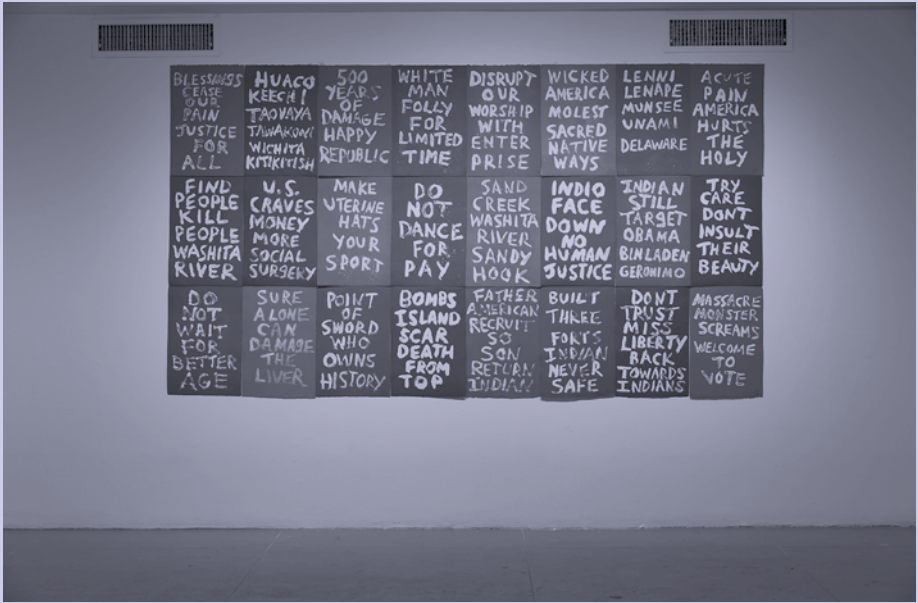 BLESSINGS
CEASE
OUR
PAIN
JUSTICE
FOR
ALL
HUACO
KEECHI
TAOVAYA
TAWAKONI
WICHITA
KITIKITISH
500
YEARS
OF
DAMAGE
HAPPY
REPUBLIC
WHITE
MAN
FOLLY
FOR
LIMITED
TIME
DISRUPT
OUR
WORSHIP
WITH
ENTER
PRISE
WICKED
AMERICA
MOLEST
SACRED
NATIVE
WAYS
LENNI
LENAPE
MUNSEE
UNAMI
DELAWARE
ACUTE
PAIN
AMERICA
HURTS
THE
HOLY
FIND
PEOPLE
KILL
PEOPLE
WASHITA
RIVER
U.S.
CRAVES
MONEY
MORE
SOCIAL
SURGERY
MAKE
UTERINE
HATS
YOUR
SPORT
DO
NOT
DANCE
FOR
PAY
SAND
CREEK
WASHITA
RIVER
SANDY
HOOK
INDIO
FACE
DOWN
NO
HUMAN
JUSTICE
INDIAN
STILL
TARGET
OBAMA
BINLADEN
GERONIMO
TRY
CARE
DONT
INSULT
THEIR
BEAUTY
DO
NOT
WAIT
FOR
BETTER
AGE
SURE
ALONE
CAN
DAMAGE
THE
LIVER
POINT
OF
SWORD
WHO
OWNS
HISTORY
BOMBS
ISLAND
SCAR
DEATH
FROM
TOP
FATHER
AMERICAN
RECRUIT
SO
SON
RETURN
INDIAN
BUILT
THREE
FORTS
INDIAN
NEVER
SAFE
DONT
TRUST
MISS
LIBERTY
BACK
TOWARDS
INDIANS
MASSACRE
MONSTER
SCREAMS
WELCOME
TO
VOTE